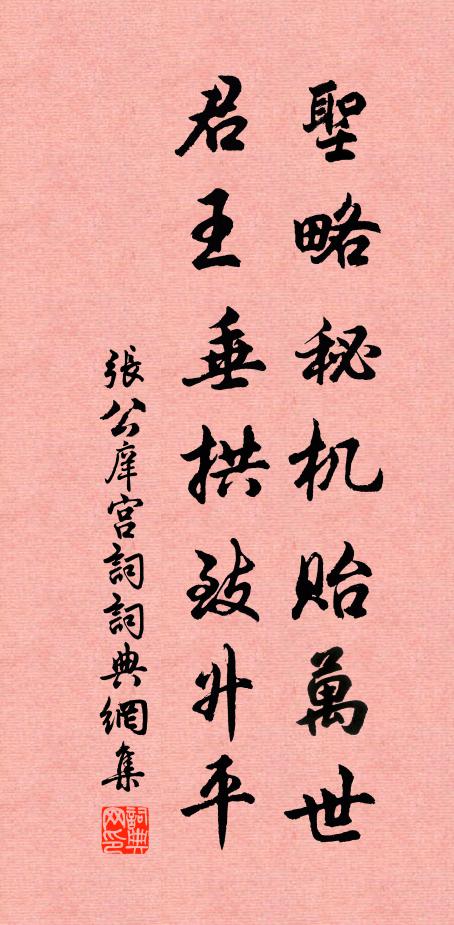 聖略秘机貽萬世
君王垂拱致升平
張公庠宮詞詞典網集
詞典网印